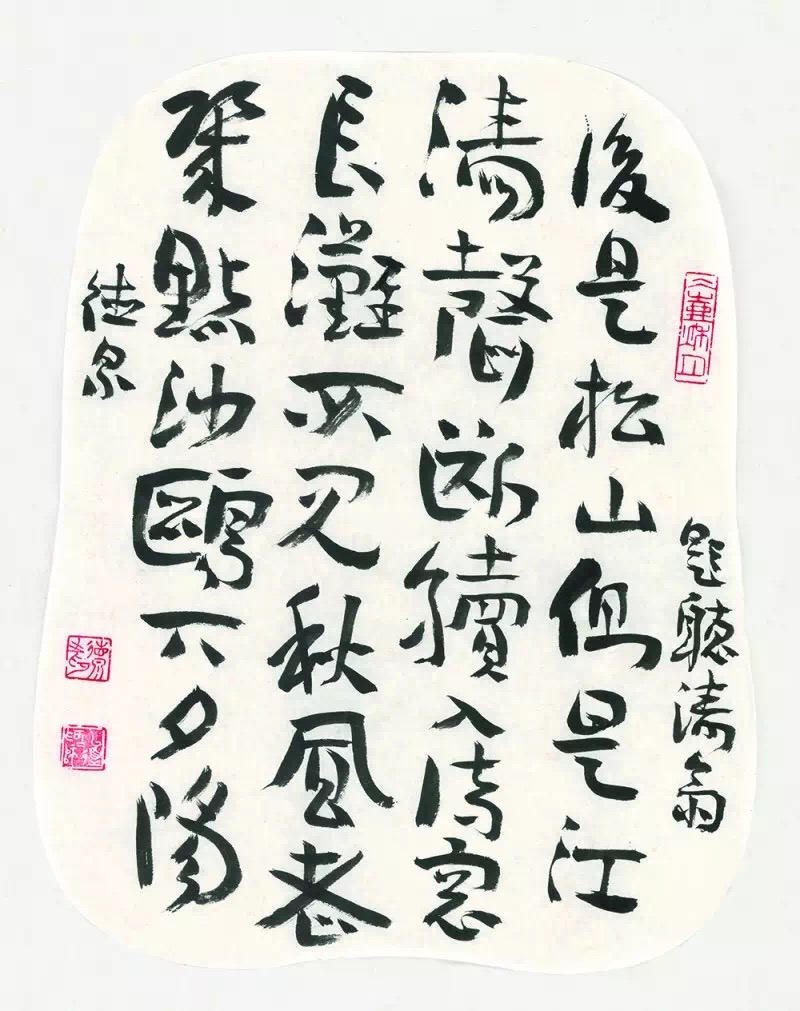 題聽濤翁
後是松山但是江
濤聲斷續入清窓
長灘不見秋風老
點沙鷗下夕陽
德泉